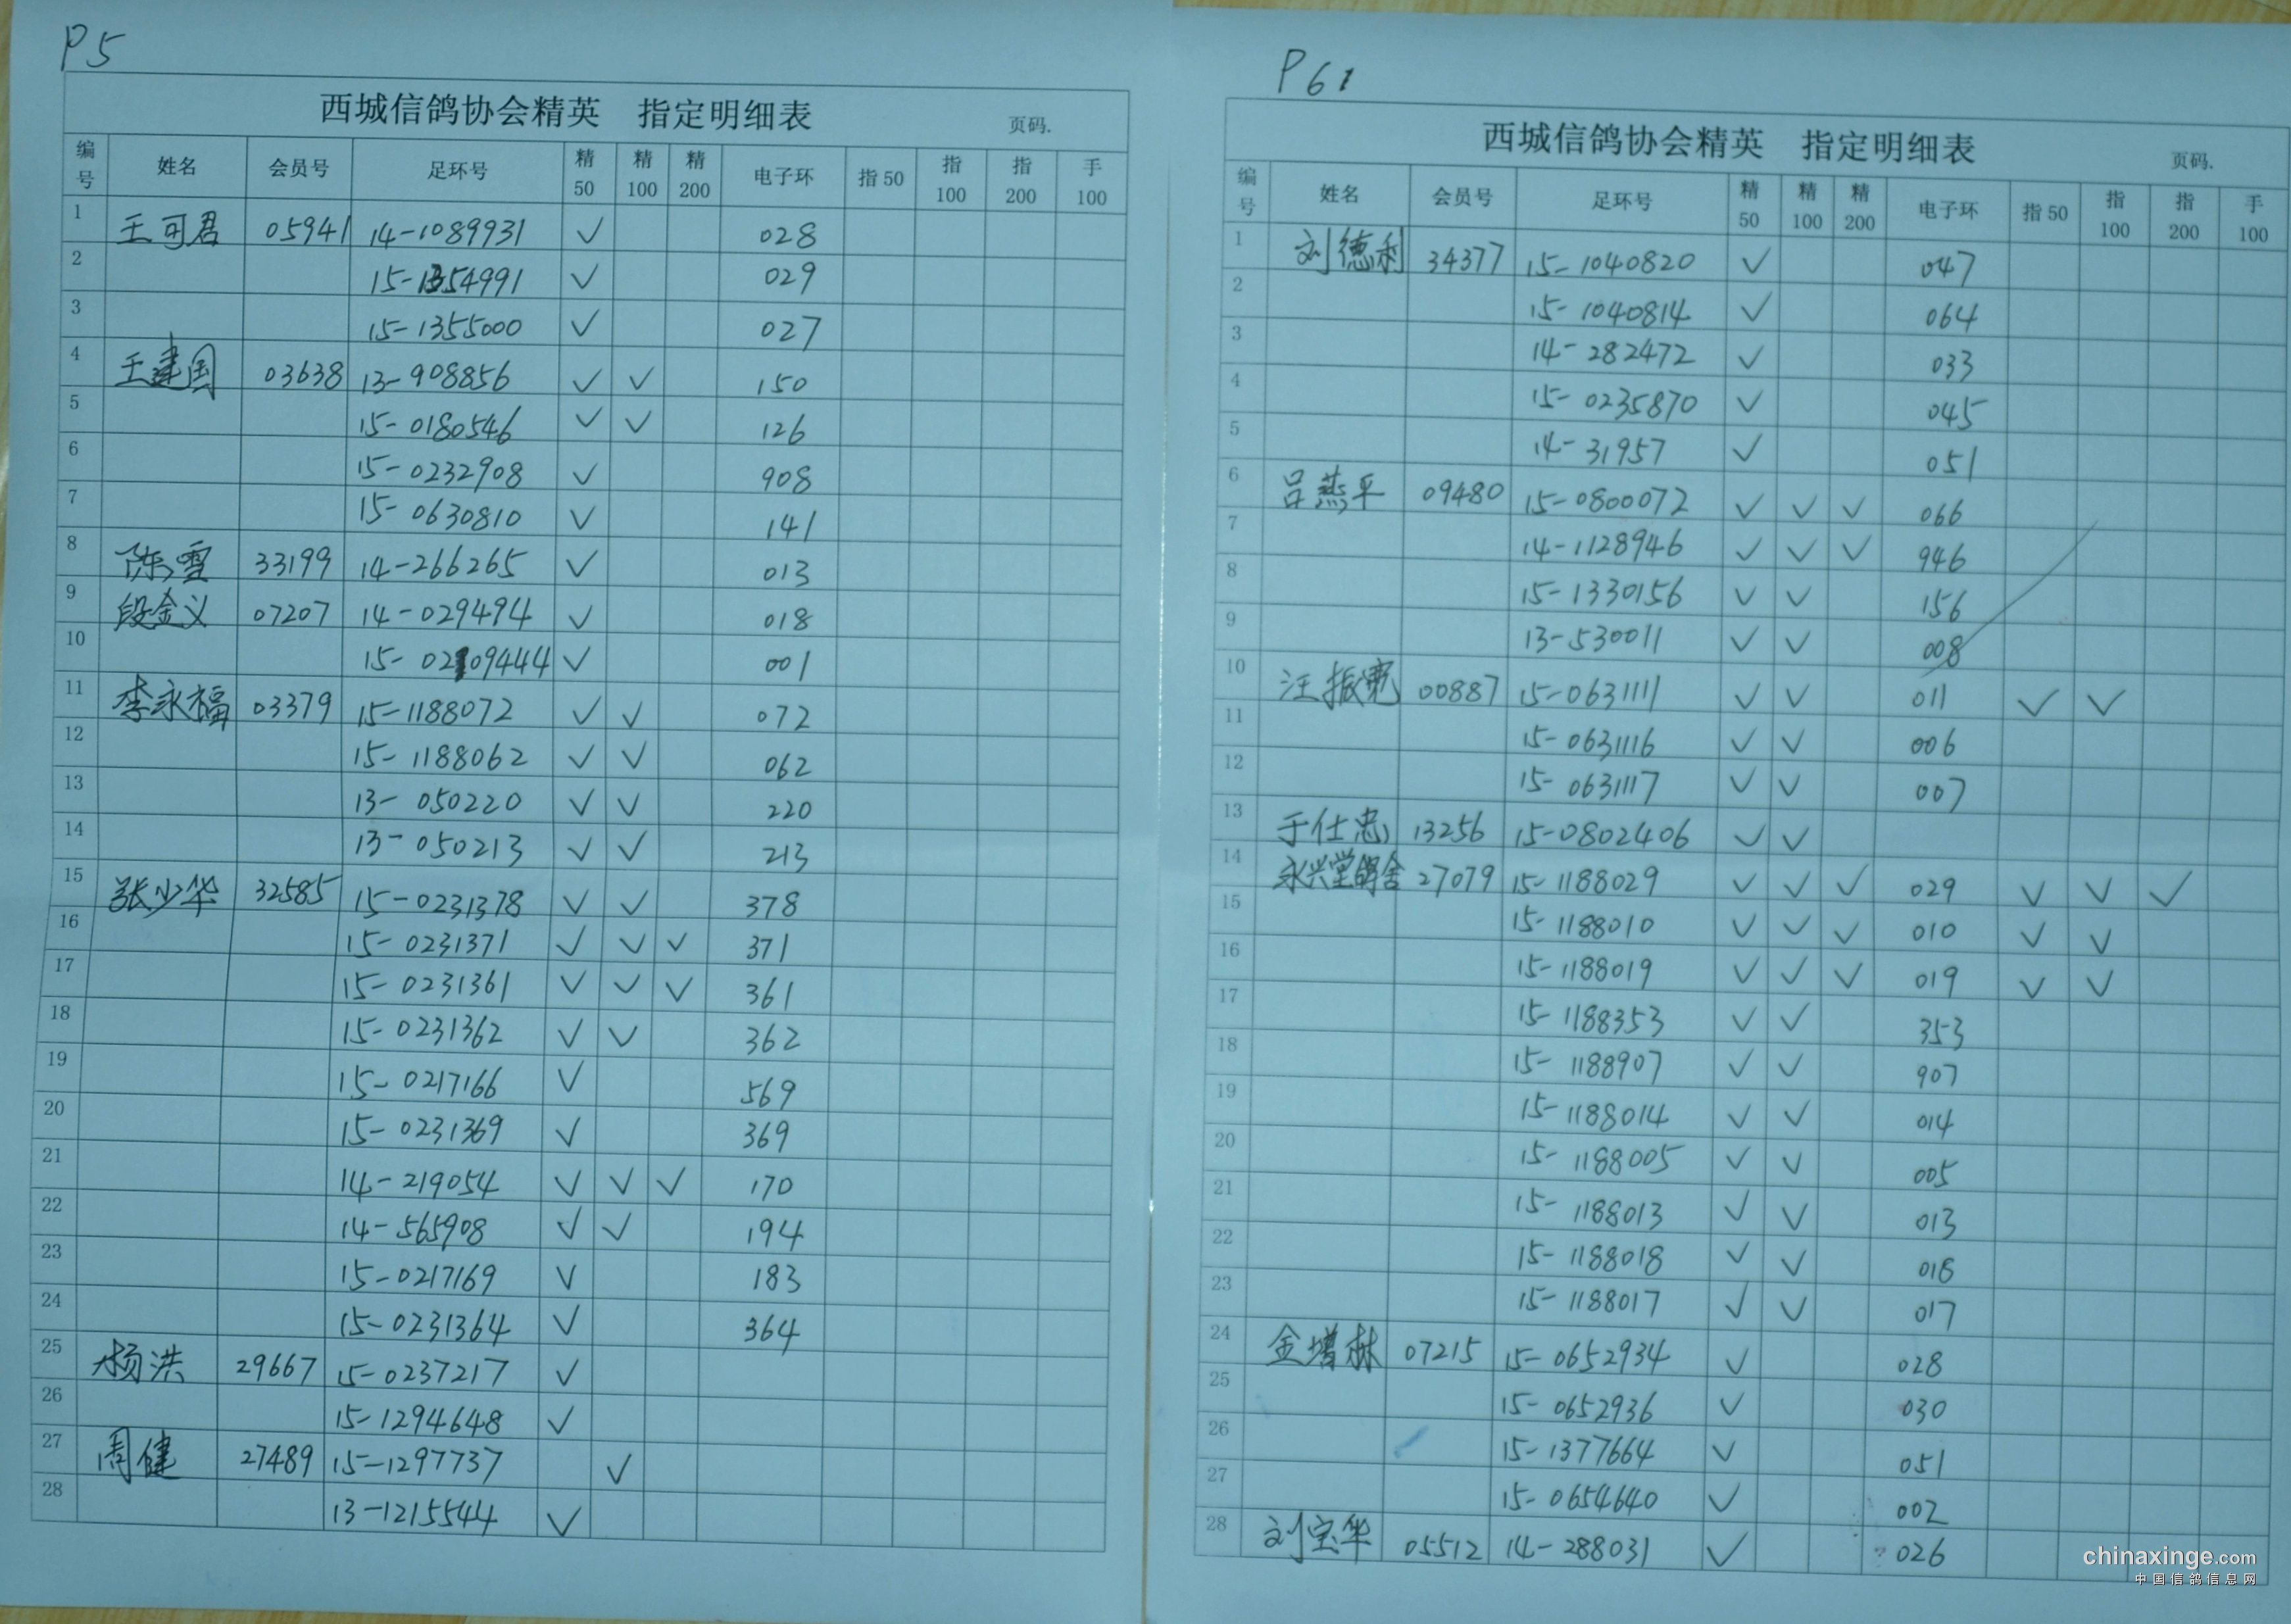 P5
西城信鸽协会精英 指定明细表 页码.
编号 姓名 会员号 足环号 精50 精100 精200 电子环 指50 指100 指200 手100
1 王可君 05941 14-1089931 ✓ 028
2 15-1354991 ✓ 029
3 15-1355000 ✓ 027
4 王建国 03638 13-908856 ✓ ✓ 150
5 15-0180546 ✓ ✓ 126
6 15-0232908 ✓ 908
7 15-0630810 ✓ 141
8 陈雪 33199 14-266265 ✓ 013
9 段金义 07207 14-029494 ✓ 018
10 15-02109444 ✓ 001
11 李永福 03379 15-1188072 ✓ ✓ 072
12 15-1188062 ✓ ✓ 062
13 13-050220 ✓ ✓ 220
14 13-050213 ✓ ✓ 213
15 张少华 32585 15-0231378 ✓ ✓ 378
16 15-0231371 ✓ ✓ ✓ 371
17 15-0231361 ✓ ✓ ✓ 361
18 15-0231362 ✓ ✓ 362
19 15-0217166 ✓ 569
20 15-0231369 ✓ 369
21 14-219054 ✓ ✓ ✓ 170
22 14-565908 ✓ ✓ 194
23 15-0217169 ✓ 183
24 15-0231364 ✓ 364
25 杨洪 29667 15-0237217 ✓
26 15-1294648 ✓
27 周健 27489 15-1297737 ✓
28 13-1215544 ✓
P61
西城信鸽协会精英 指定明细表 页码.
编号 姓名 会员号 足环号 精50 精100 精200 电子环 指50 指100 指200 手100
1 刘德利 34377 15-1040820 ✓ 047
2 15-1040814 ✓ 064
3 14-282472 ✓ 033
4 15-0235870 ✓ 045
5 14-31957 ✓ 051
6 吕燕平 09480 15-0800072 ✓ ✓ ✓ 066
7 14-1128946 ✓ ✓ ✓ 946
8 15-1330156 ✓ ✓ 156
9 13-530011 ✓ ✓ 008
10 汪振 00887 15-0631111 ✓ ✓ 011 ✓ ✓
11 15-0631116 ✓ ✓ 006
12 15-0631117 ✓ ✓ 007
13 于仕忠 13256 15-0802406 ✓ ✓
14 永兴堂鸽舍 27079 15-1188029 ✓ ✓ ✓ 029 ✓ ✓ ✓
15 15-1188010 ✓ ✓ ✓ 010 ✓ ✓
16 15-1188019 ✓ ✓ ✓ 019 ✓ ✓
17 15-1188353 ✓ ✓ 353
18 15-1188907 ✓ ✓ 907
19 15-1188014 ✓ ✓ 014
20 15-1188005 ✓ ✓ 005
21 15-1188013 ✓ ✓ 013
22 15-1188018 ✓ ✓ 018
23 15-1188017 ✓ ✓ 017
24 金增林 07215 15-0652934 ✓ 028
25 15-0652936 ✓ 030
26 15-1377664 ✓ 051
27 15-0654640 ✓ 002
28 刘宝华 05512 14-288031 ✓ 026
chinaxinge.com
中国信鸽信息网